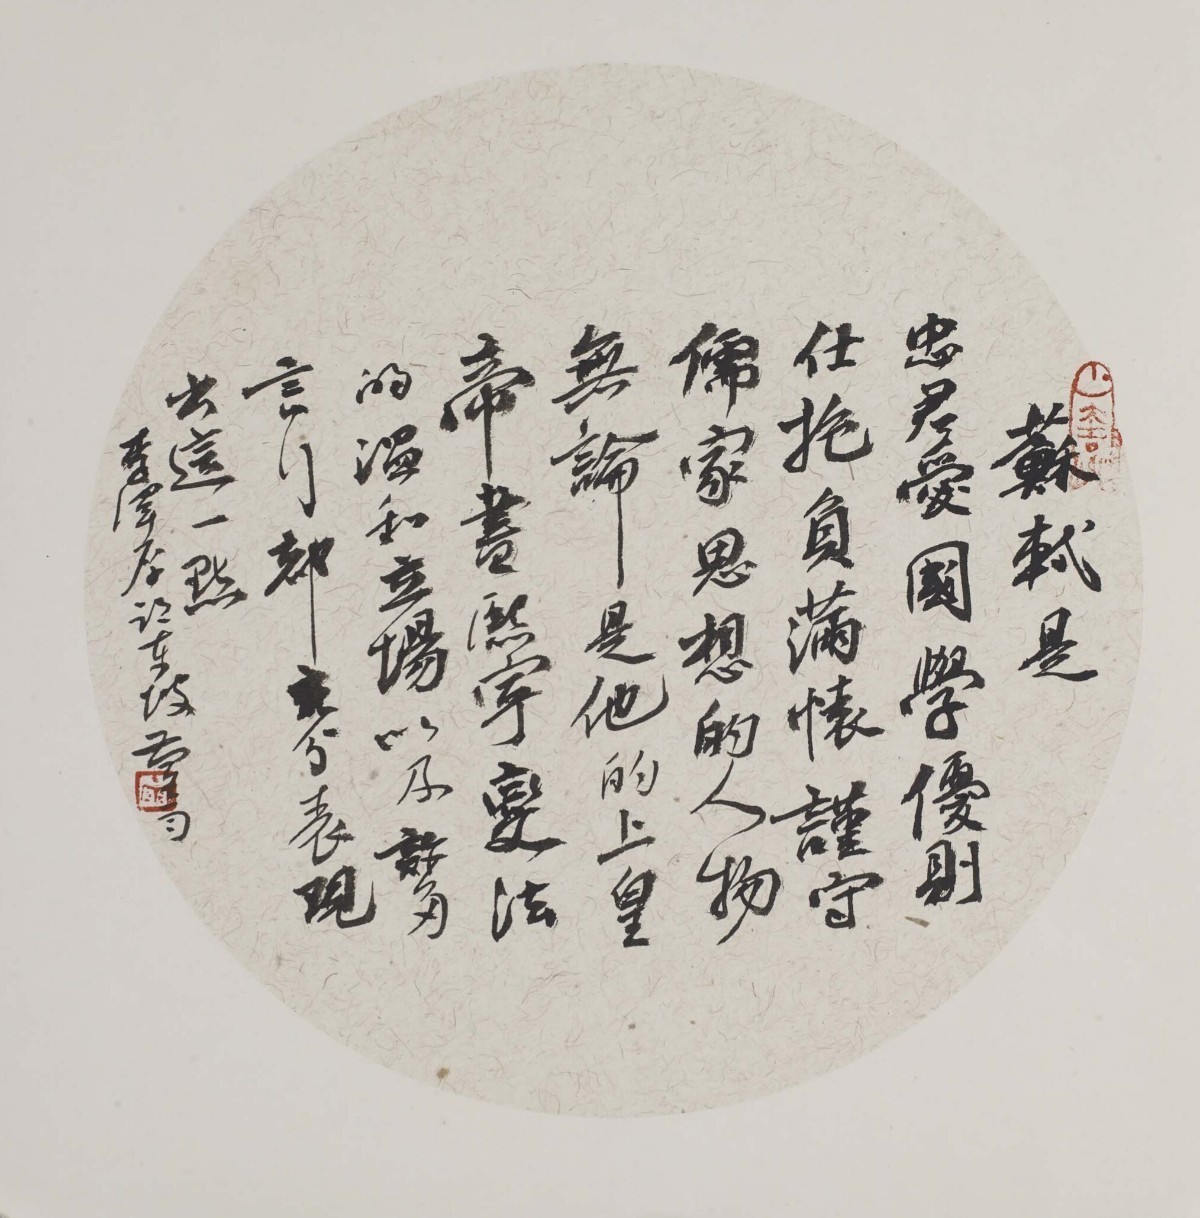 蘇軾是
忠君愛國學優則
仕抱負滿懷謹守
儒家思想的人物
無論是他的上皇
帝書熙寧變法
的溫和立場以及許多
言行都充分表現
出這一點
李澤厚記東坡